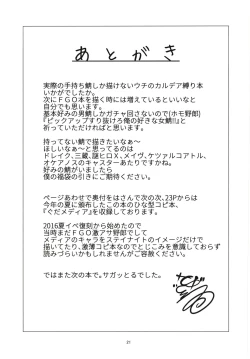 あとがき
実際の手持ち鯖しか描けないウチのカルデア縛り本
いかがでしたか。
次にFGO本を描く時には増えているといいなと
自分でも思います。
基本好みの男鯖しかガチャ回さないので(ホモ野郎)
『ピックアップすり抜けろ俺の好きな女鯖!!』と
祈っていただければと思います。
持ってない鯖で描きたいなぁ〜
ほしいなぁ〜と思ってるのは
ドレイク、三蔵、謎ヒロX、メイヴ、ケツァルコアトル、
オケアノスのキャスターあたりですかね。
好みの鯖がいましたら
僕の福袋の引きにご期待ください。
ページあわせで奥付をはさんで次の次、23Pからは
今年の夏に頒布したこの本のひな型コピ本、
『ぐだメディア』を収録しております。
2016夏イベ復刻から始めたので
当時まだFGO激アサ野郎でして
メディアのキャラをステイナイトのイメージだけで
描いてたり、激薄コピ本なのでとじこみを意識しておらず
読みづらいかもしれませんがご容赦ください。
ではまた次の本で。サガッとるでした。
21